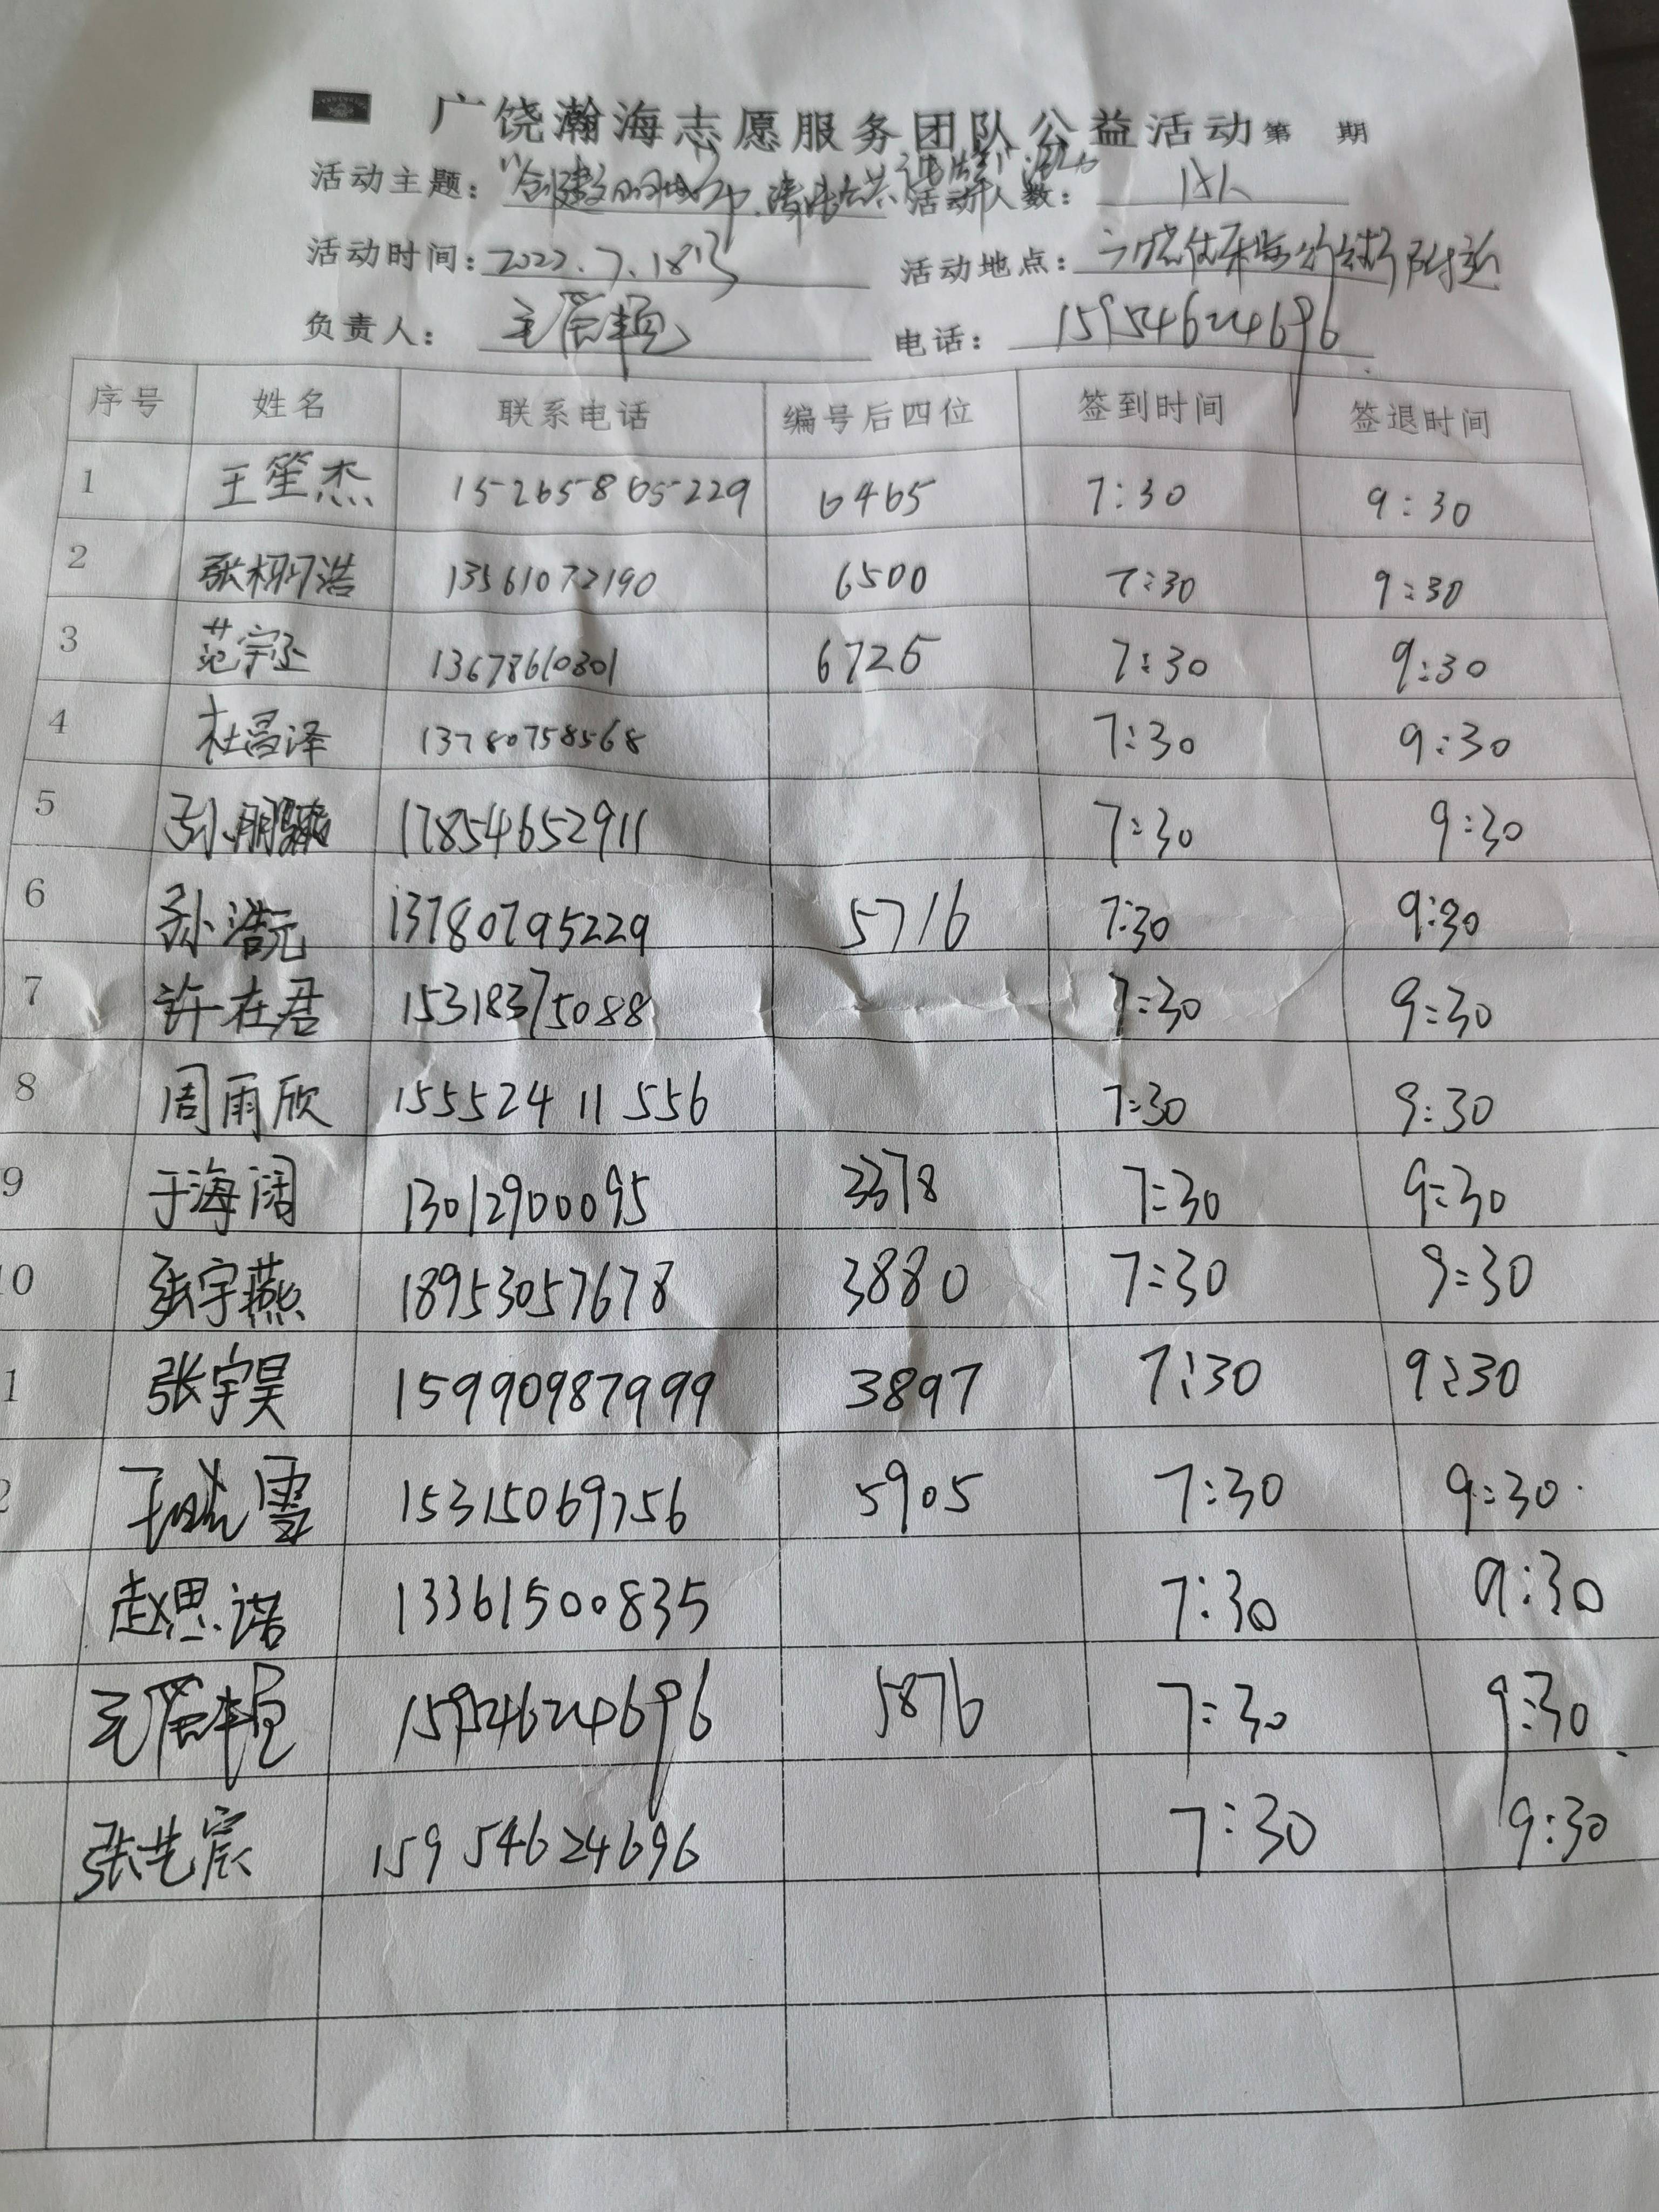 广饶瀚海志愿服务团队公益活动第 期
活动主题: 活动人数:
活动时间: 2022.7.18 活动地点:
负责人: 电话: 15954624696
序号 姓名 联系电话 编号后四位 签到时间 签退时间
1 王笙杰 15265865229 6465 7:30 9:30
2 张栩浩 13561072190 6500 7:30 9:30
3 范宇丞 13678610801 6725 7:30 9:30
4 杜昌泽 13780758568 7:30 9:30
5 孙鹏 17854652911 7:30 9:30
6 孙浩元 13780795229 5716 7:30 9:30
7 许在君 15318375088 7:30 9:30
8 周雨欣 15552411556 7:30 9:30
9 于海阔 13012900095 3378 7:30 9:30
10 张宇燕 18953057678 3880 7:30 9:30
1 张宇昊 15990987999 3897 7:30 9:30
2 王晓雪 15315069756 5905 7:30 9:30
赵思诺 13361500835 7:30 9:30
15954624696 5876 7:30 9:30
张艺宸 15954624696 7:30 9:30